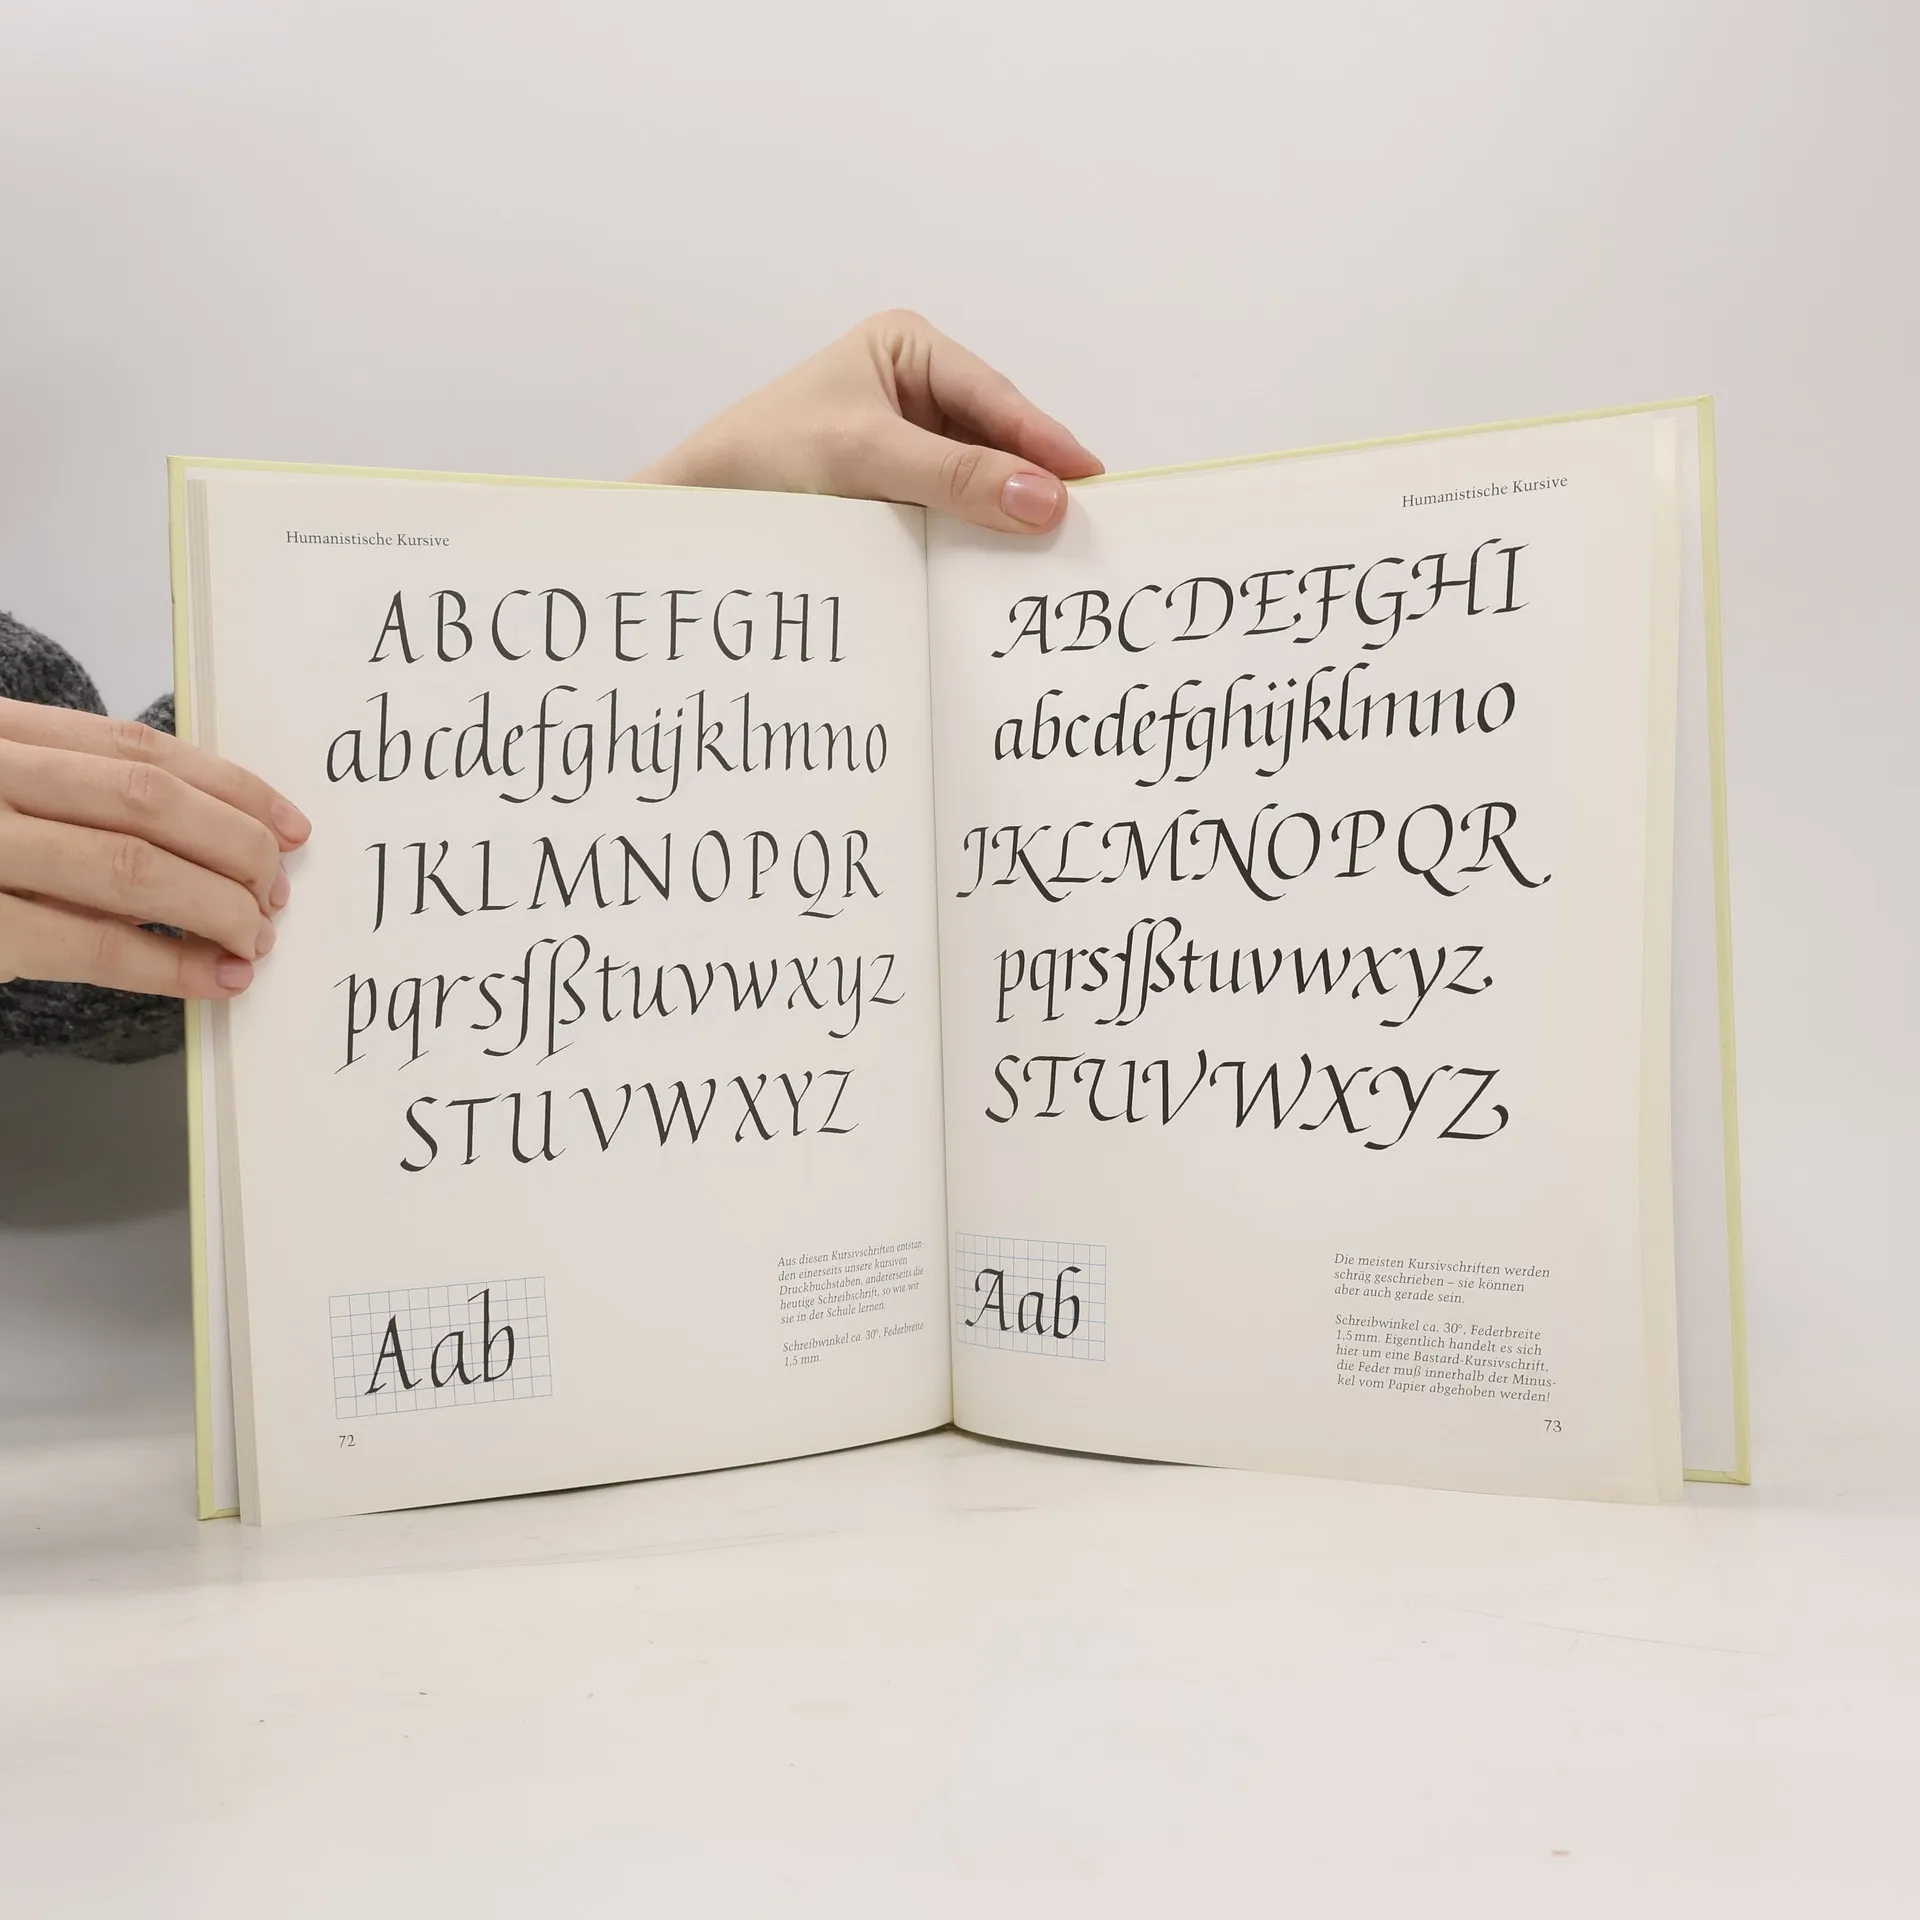 Humanistische Kursive
ABCDEFGHI
abcdefghijklmno
JKLMNOPQR
pqrsſßtuvwxyz
STUVWXYZ
Aab
Aus diesen Kursivschriften entstan-
den einerseits unsere kursiven
Druckbuchstaben, andererseits die
heutige Schreibschrift, so wie wir
sie in der Schule lernen.
Schreibwinkel ca. 30°, Federbreite
1,5 mm.
72
Humanistische Kursive
ABCDEFGHI
abcdefghijklmno
JKLMNOPQR
pqrsſßtuvwxyz
STUVWXYZ
Aab
Die meisten Kursivschriften werden
schräg geschrieben – sie können
aber auch gerade sein.
Schreibwinkel ca. 30°, Federbreite
1,5 mm. Eigentlich handelt es sich
hier um eine Bastard-Kursivschrift,
die Feder muß innerhalb der Minus-
kel vom Papier abgehoben werden!
73